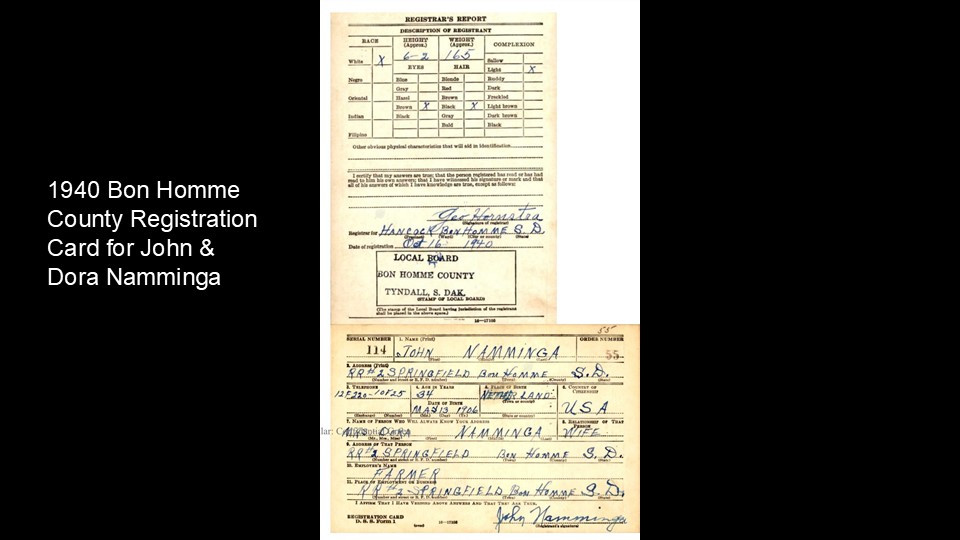 1940 Bon Homme
County Registration
Card for John &
Dora Namminga
REGISTRAR'S REPORT
DESCRIPTION OF REGISTRANT
RACE HEIGHT (Approx.) WEIGHT (Approx.) COMPLEXION
6-2 165 Sallow
White X EYES HAIR Light X
Negro Blue Blonde Ruddy
Gray Red Dark
Oriental Hazel Brown Freckled
Brown X Black X Light brown
Indian Black Gray Dark brown
Bald Black
Filipino
Other obvious physical characteristics that will aid in identification
I certify that my answers are true; that the person registered has read or has had
read to him his own answers; that I have witnessed his signature or mark and that
all of his answers of which I have knowledge are true, except as follows:
Geo Hornstra
(Signature of registrar)
Registrar for HANCOCK BON HOMME S. D.
(Precinct) (Ward) (City or county) (State)
Date of registration Oct 16 1940
LOCAL BOARD
BON HOMME COUNTY
TYNDALL, S. DAK.
STAMP OF LOCAL BOARD
(The stamp of the Local Board having jurisdiction of the registrant
shall be placed in the above space.)
55
SERIAL NUMBER 1. NAME (Print) ORDER NUMBER
114 JOHN NAMMINGA 55
2. ADDRESS (Print)
RR#2 SPRINGFIELD BON HOMME S.D.
(Number and street or R. F. D. number) (Town) (County) (State)
3. TELEPHONE 4. AGE IN YEARS 5. PLACE OF BIRTH 6. COUNTRY OF CITIZENSHIP
12F220-10F25 34 NETHERLAND
DATE OF BIRTH (Town or county)
1906 USA
(Exchange) (Number) (Mo.) (Day) (Yr.) (State or country)
7. NAME OF PERSON WHO WILL ALWAYS KNOW YOUR ADDRESS 8. RELATIONSHIP OF THAT PERSON
MRS DORA NAMMINGA WIFE
(Mr., Mrs., Miss) (First) (Middle) (Last)
9. ADDRESS OF THAT PERSON
RR#2 SPRINGFIELD BON HOMME S.D.
(Number and street or R. F. D. number) (Town) (County) (State)
10. EMPLOYER'S NAME
FARMER
11. PLACE OF EMPLOYMENT OR BUSINESS
RR#2 SPRINGFIELD BON HOMME S.D.
(Number and street or R. F. D. number) (Town) (County) (State)
I AFFIRM THAT I HAVE VERIFIED ABOVE ANSWERS AND THAT THEY ARE TRUE.
REGISTRATION CARD
D. S. S. Form 1
John Namminga
(Registrant's signature)